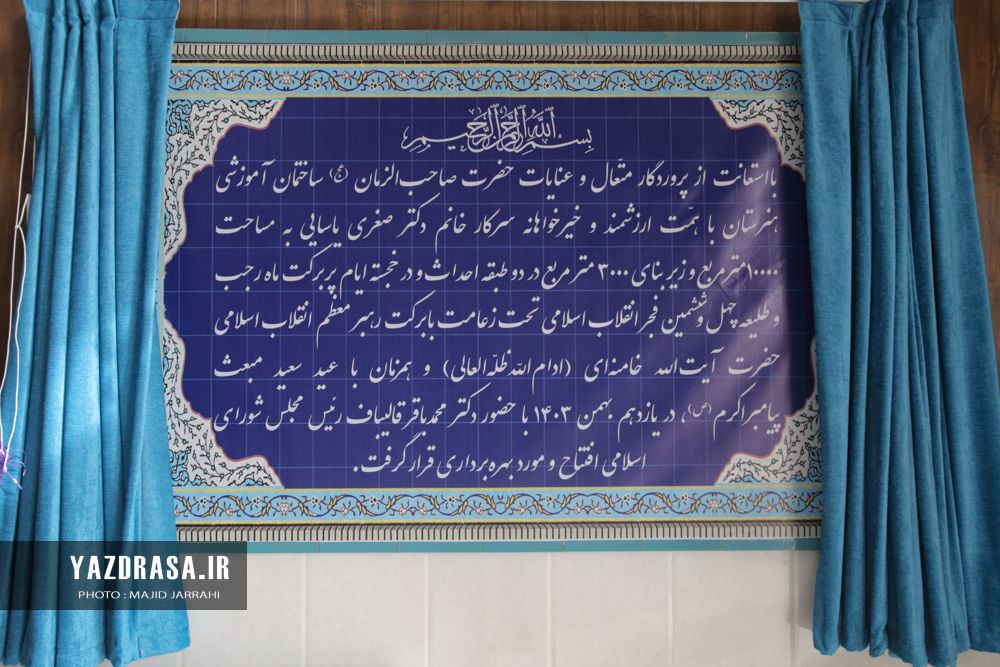 بسم الله الرحمن الرحیم
با استعانت از پروردگار متعّال و عنایات حضرت صاحب‌الزمان (عج) ساختمان آموزشی
هنرستان با همّت ارزشمند و خیرخواهانه سرکار خانم دکتر صغری یاسایی به مساحت
۱۰۰۰۰ متر مربع و زیر بنای ۳۰۰۰ متر مربع در دو طبقه احداث و در خجسته ایام پر برکت ماه رجب
و طلیعه چهل و ششمین فجر انقلاب اسلامی تحت زعامت با برکت رهبر معظم انقلاب اسلامی
حضرت آیت‌الله خامنه‌ای (ادام الله ظلّه العالی) و همزمان با عید سعید مبعث
پیامبر اکرم (ص)، در یازدهم بهمن ۱۴۰۳ با حضور دکتر محمدباقر قالیباف رئیس مجلس شورای
اسلامی افتتاح و مورد بهره برداری قرار گرفت.
YAZDRASA.IR
PHOTO : MAJID JARRAHI